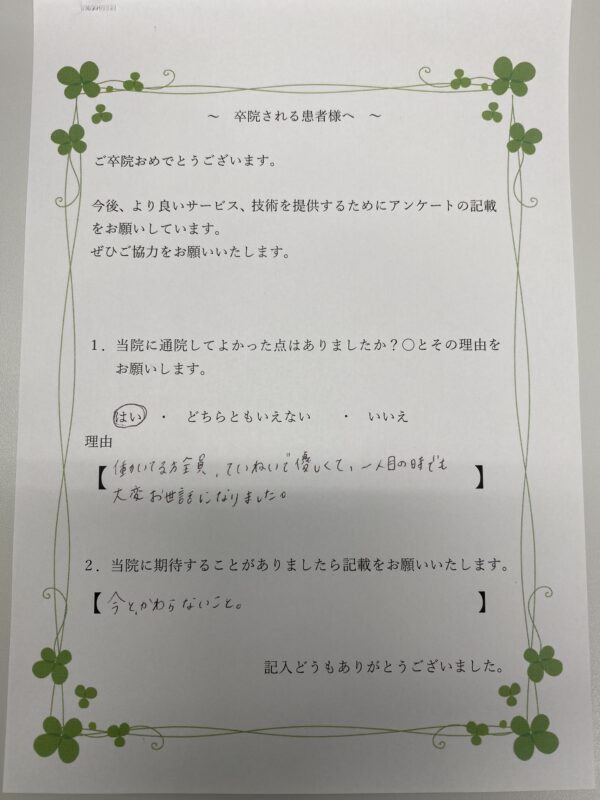 ～ 卒院される患者様へ ～
ご卒院おめでとうございます。
今後、より良いサービス、技術を提供するためにアンケートの記載
をお願いしています。
ぜひご協力をお願いいたします。
１．当院に通院してよかった点はありましたか？〇とその理由を
お願いします。
はい ・ どちらともいえない ・ いいえ
理由
【働いてる方全員、ていねいで優しくて、一人目の時でも
大変お世話になりました。】
２．当院に期待することがありましたら記載をお願いいたします。
【今と、かわらないこと。】
記入どうもありがとうございました。